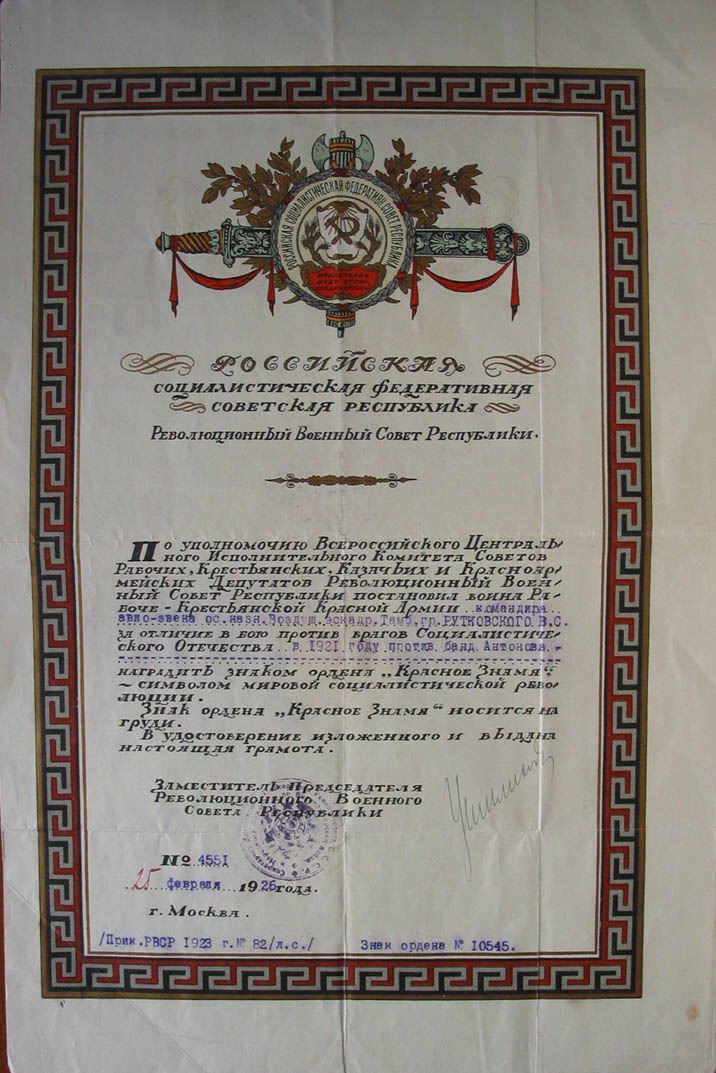 РОССИЙСКАЯ СОЦИАЛИСТИЧЕСКАЯ ФЕДЕРАТИВН СОВЕТ РЕСПУБЛИКА
ПРОЛЕТАРИИ
ВСЕХ СТРАН,
СОЕДИНЯЙТЕСЬ
РОССИЙСКАЯ
СОЦИАЛИСТИЧЕСКАЯ ФЕДЕРАТИВНАЯ
СОВЕТСКАЯ РЕСПУБЛИКА
РЕВОЛЮЦИОННЫЙ ВОЕННЫЙ СОВЕТ РЕСПУБЛИКИ.
ПО УПОЛНОМОЧИЮ ВСЕРОССИЙСКОГО ЦЕНТРАЛЬ-
НОГО ИСПОЛНИТЕЛЬНОГО КОМИТЕТА СОВЕТОВ
РАБОЧИХ, КРЕСТЬЯНСКИХ, КАЗАЧЬИХ И КРАСНОАР-
МЕЙСКИХ ДЕПУТАТОВ РЕВОЛЮЦИОННЫЙ ВОЕН-
НЫЙ СОВЕТ РЕСПУБЛИКИ ПОСТАНОВИЛ ВОИНА РА-
БОЧЕ-КРЕСТЬЯНСКОЙ КРАСНОЙ АРМИИ командира
авио-звена ос.назн.Воздуш.эскадр.Тамб.гр.РУТКОВСКОГО В.С.
ЗА ОТЛИЧИЕ В БОЮ ПРОТИВ ВРАГОВ СОЦИАЛИСТИЧЕ-
СКОГО ОТЕЧЕСТВА в 1921 году против банд Антонова -
НАГРАДИТЬ ЗНАКОМ ОРДЕНА „КРАСНОЕ ЗНАМЯ“
- СИМВОЛОМ МИРОВОЙ СОЦИАЛИСТИЧЕСКОЙ РЕВО-
ЛЮЦИИ.
ЗНАК ОРДЕНА „КРАСНОЕ ЗНАМЯ“ НОСИТСЯ НА
ГРУДИ.
В УДОСТОВЕРЕНИЕ ИЗЛОЖЕННОГО И ВЫДАНА
НАСТОЯЩАЯ ГРАМОТА.
ЗАМЕСТИТЕЛЬ ПРЕДСЕДАТЕЛЯ
РЕВОЛЮЦИОННОГО ВОЕННОГО
СОВЕТА РЕСПУБЛИКИ
№ 4551
25 февраля 1926 года.
г. МОСКВА.
/Прик.РВСР 1923 г.№ 82/л.с./ Знак ордена № 10545.